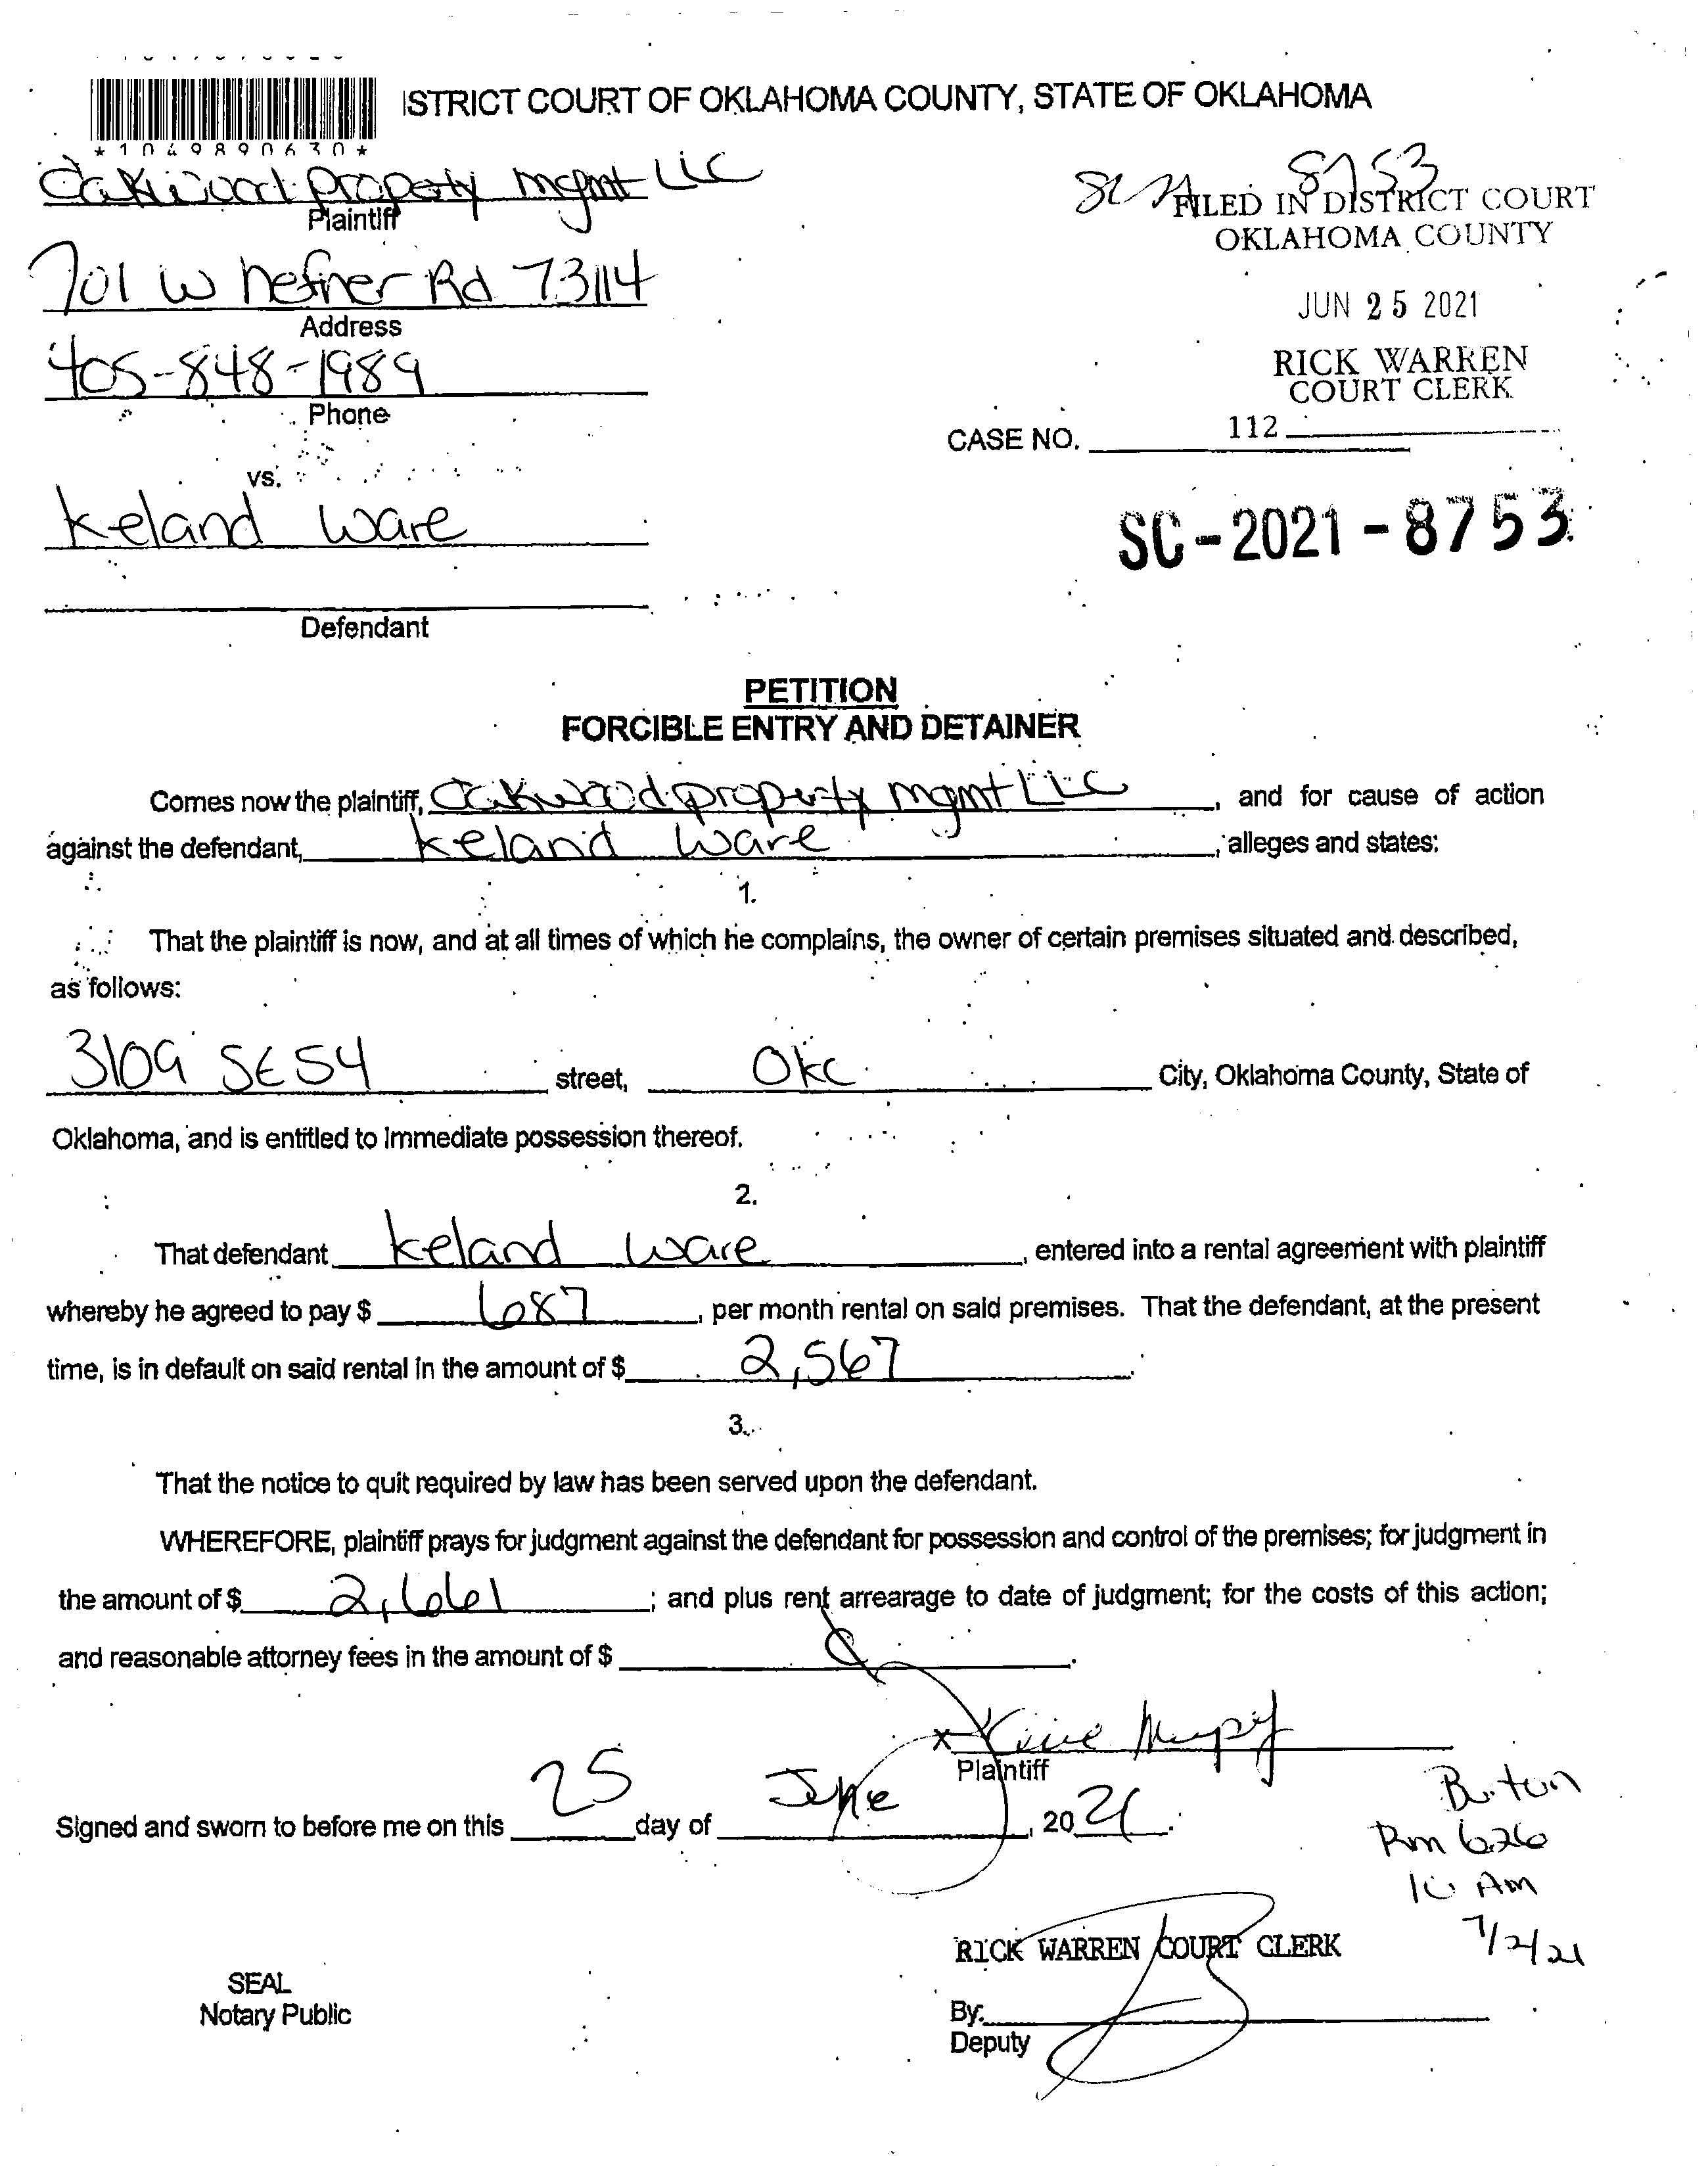 ISTRICT COURT OF OKLAHOMA COUNTY, STATE OF OKLAHOMA
*1049890630*
Oakwood property mgmt LLC
Plaintiff
SC 21 8753
FILED IN DISTRICT COURT
OKLAHOMA COUNTY
701 W hefner Rd 73114
Address
JUN 25 2021
405-848-1989
Phone
RICK WARREN
COURT CLERK
CASE NO. 112
vs.
Keland Ware
SC-2021-8753
Defendant
PETITION
FORCIBLE ENTRY AND DETAINER
Comes now the plaintiff, Oakwood property mgmt LLC, and for cause of action
against the defendant, Keland Ware, alleges and states:
1.
That the plaintiff is now, and at all times of which he complains, the owner of certain premises situated and described,
as follows:
3109 SE 54 street, Okc City, Oklahoma County, State of
Oklahoma, and is entitled to immediate possession thereof.
2.
That defendant Keland Ware, entered into a rental agreement with plaintiff
whereby he agreed to pay $ 687, per month rental on said premises. That the defendant, at the present
time, is in default on said rental in the amount of $ 2,567.
3.
That the notice to quit required by law has been served upon the defendant.
WHEREFORE, plaintiff prays for judgment against the defendant for possession and control of the premises; for judgment in
the amount of $ 2,661; and plus rent arrearage to date of judgment; for the costs of this action;
and reasonable attorney fees in the amount of $
x
Plaintiff
Signed and sworn to before me on this 25 day of June, 2021.
Rm 626
10 Am
7/2/21
RICK WARREN COURT CLERK
SEAL
Notary Public
By:
Deputy